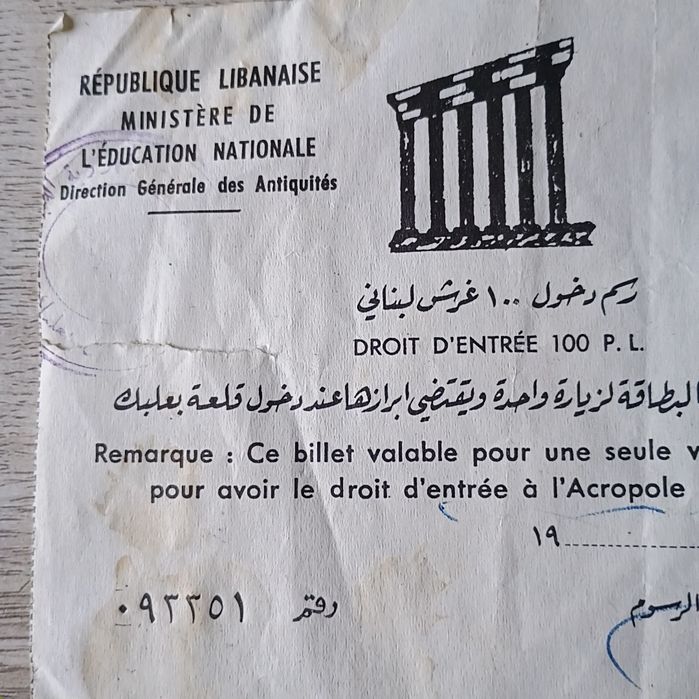 RÉPUBLIQUE LIBANAISE
MINISTÈRE DE
L'ÉDUCATION NATIONALE
Direction Générale des Antiquités
رسم دخول ١٠٠ غرش لبناني
DROIT D'ENTRÉE 100 P. L.
البطاقة لزيارة واحدة ويقتضي ابرازها عند دخول قلعة بعلبك
Remarque : Ce billet valable pour une seule v
pour avoir le droit d'entrée à l'Acropole
١٩
رقم ٠٩٢٢٥١
الرسوم